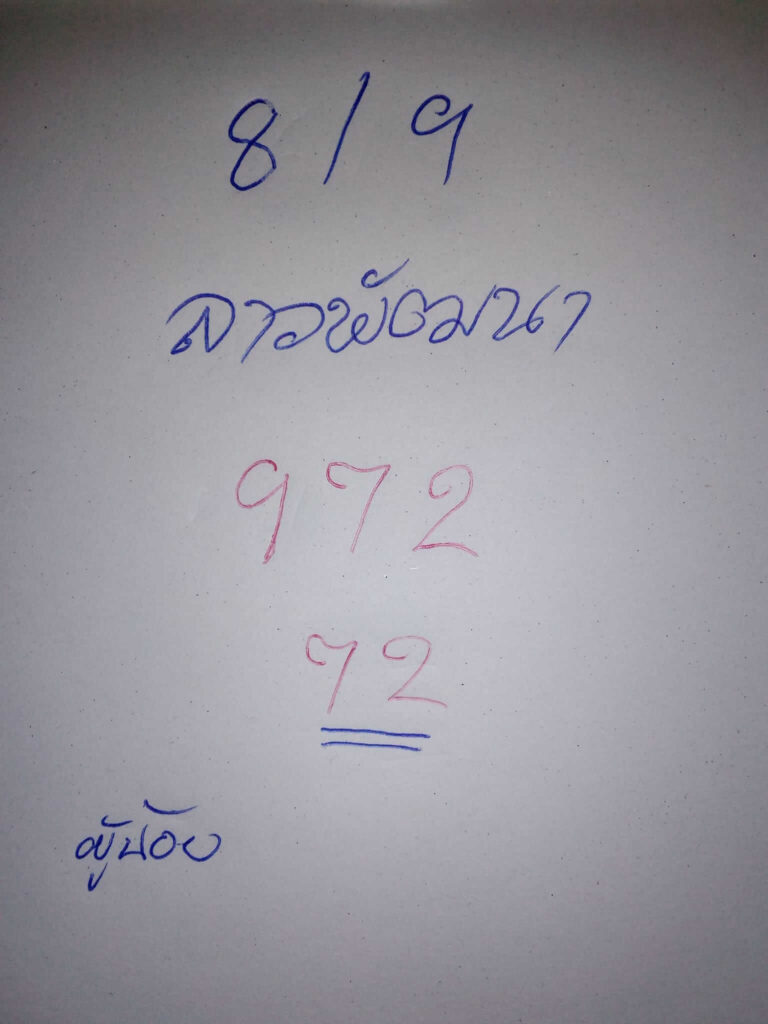 8/9
ลาวพัฒนา
972
72
ผู้น้อย